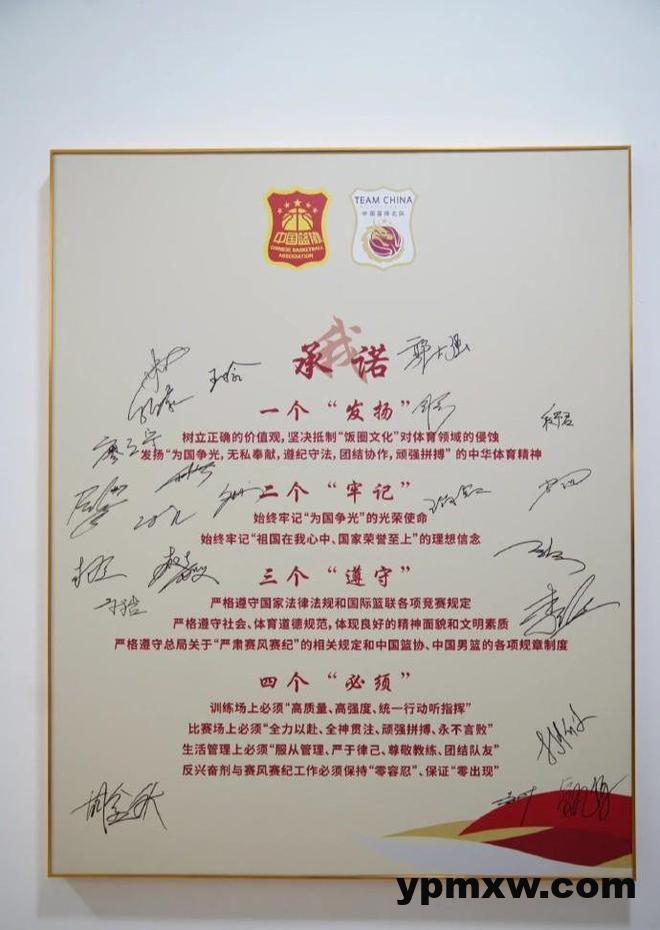 中国篮协
CHINESE BASKETBALL
ASSOCIATION
TEAM CHINA
中国篮球之队
我
承诺
一个“发扬”
树立正确的价值观，坚决抵制“饭圈文化”对体育领域的侵蚀
发扬“为国争光，无私奉献，遵纪守法，团结协作，顽强拼搏”的中华体育精神
二个“牢记”
始终牢记“为国争光”的光荣使命
始终牢记“祖国在我心中、国家荣誉至上”的理想信念
三个“遵守”
严格遵守国家法律法规和国际篮联各项竞赛规定
严格遵守社会、体育道德规范，体现良好的精神面貌和文明素质
严格遵守总局关于“严肃赛风赛纪”的相关规定和中国篮协、中国男篮的各项规章制度
四个“必须”
训练场上必须“高质量、高强度、统一行动听指挥”
比赛场上必须“全力以赴、全神贯注、顽强拼搏、永不言败”
生活管理上必须“服从管理、严于律己、尊敬教练、团结队友”
反兴奋剂与赛风赛纪工作必须保持“零容忍”、保证“零出现”
ypmxw.com